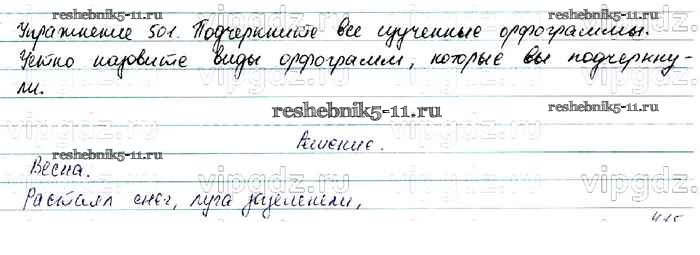 reshebnik5-11.ru
Упражнение 501. Подчеркните все изученные орфограммы.
Устно назовите виды орфограмм, которые вы подчеркну-
ли.
reshebnik5-11.ru
reshebnik5-11.ru
vipgdz.ru
vipgdz.ru
vipgdz.ru
Решение.
reshebnik5-11.ru
reshebnik5-11.ru
Весна.
vipgdz.ru
vipgdz.ru
vipgdz.ru
Растаял снег, луга зазеленели,
415